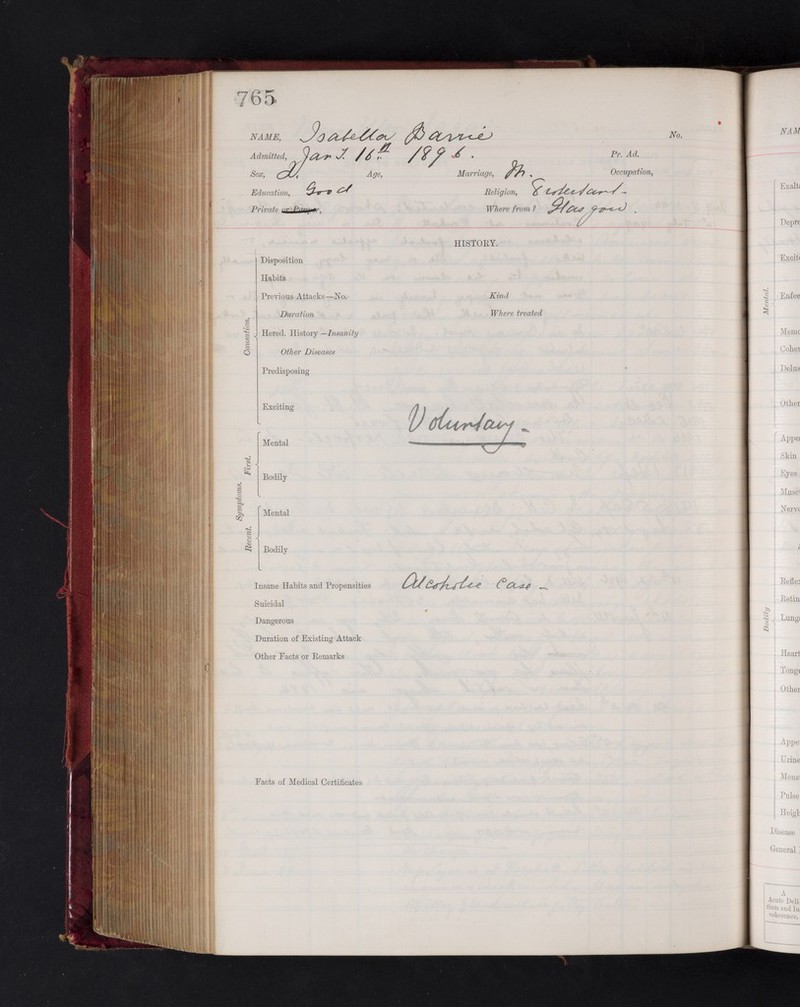 765
NAME, Isabella Barrie No.
Admitted, Jany. 16th 1896. Pr. Ad.
Sex, Age, Marriage, M. Occupation,
Education, Good Religion, Protestant
Private or Pauper, Where from? Glasgow.
HISTORY.
Disposition
Habits
Previous Attacks—No. Kind
Duration Where treated
Hered. History—Insanity
Other Diseases
Causation.
Predisposing
Exciting
Voluntary
Mental
First.
Bodily
Symptoms.
Mental
Recent.
Bodily
Insane Habits and Propensities Alcoholic Case
Suicidal
Dangerous
Duration of Existing Attack
Other Facts or Remarks
Facts of Medical Certificates
NAM
Exalta
Depre
Excite
Mental.
Enfee
Memo
Coher
Delus
Other
Appe
Skin
Eyes
Musc
Nervo
Reflex
Retin
Bodily
Lungs
Heart
Tongu
Other
Appe
Urine
Mens
Pulse
Heigh
Disease
General
A
Acute Deli-
rium and In-
coherence.